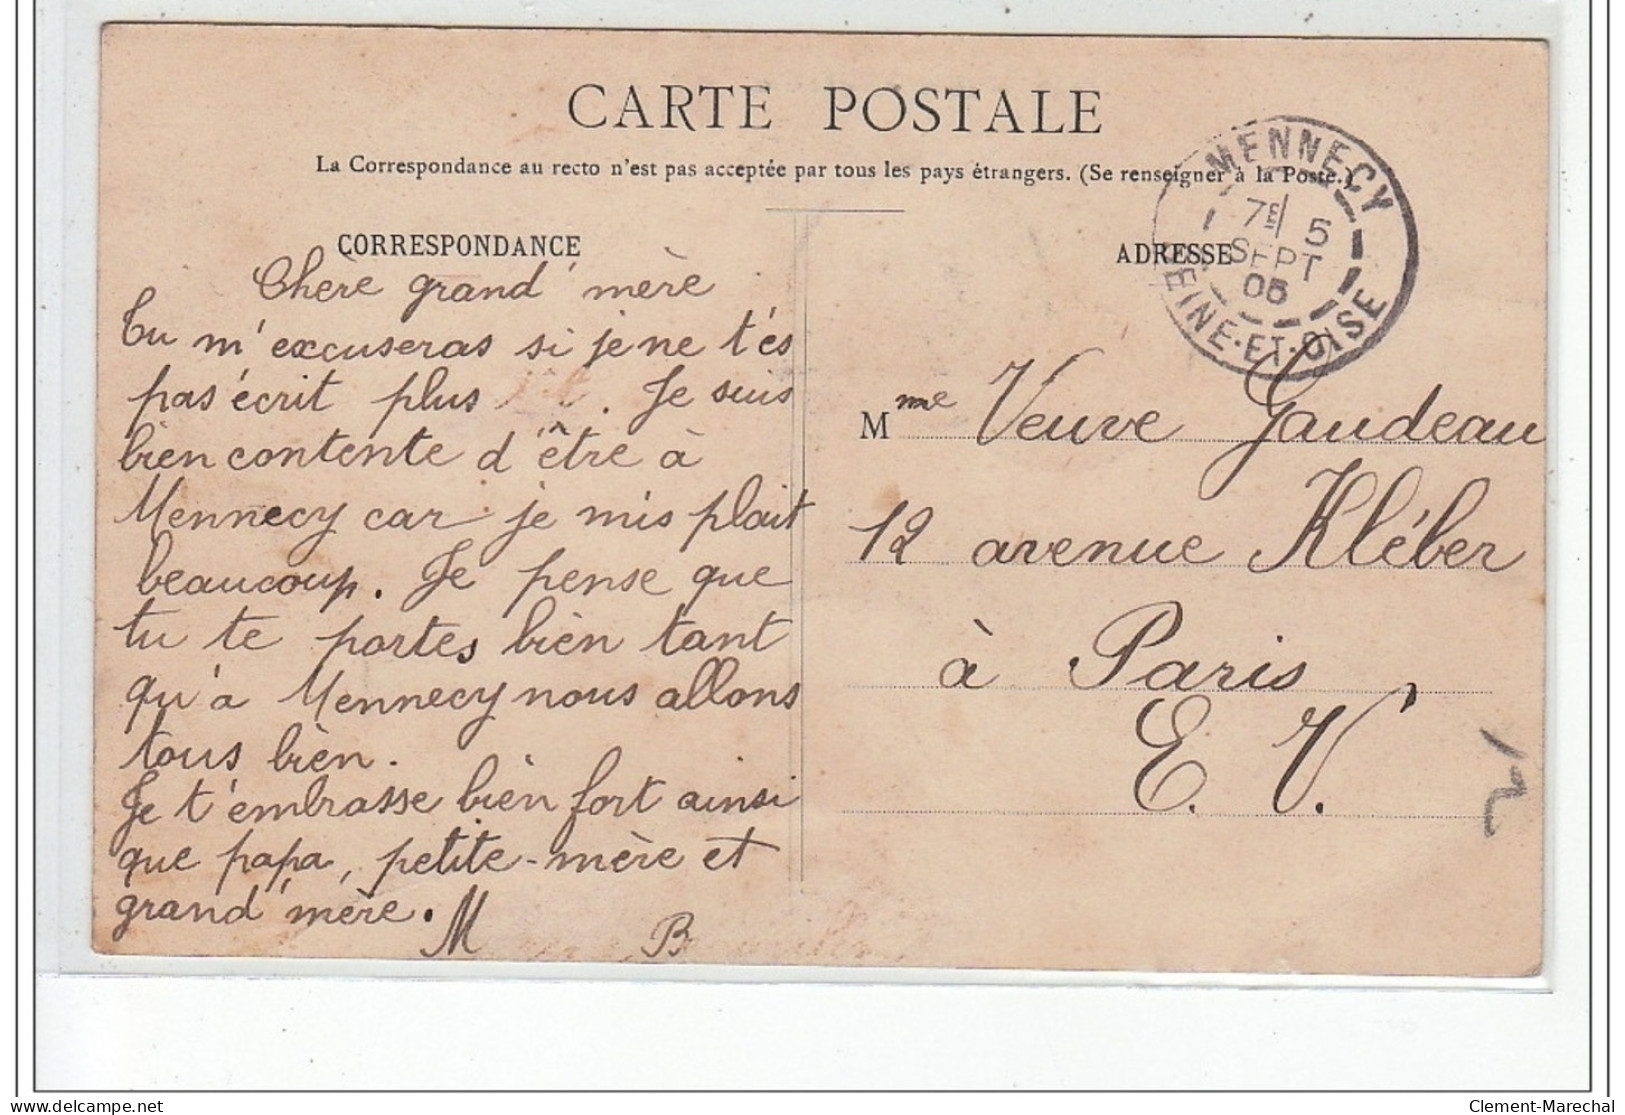 CARTE POSTALE
La Correspondance au recto n'est pas acceptée par tous les pays étrangers. (Se renseigner à la Poste.)
CORRESPONDANCE
Chère grand'mère
Tu m'excuseras si je ne t'és
pas écrit plus . Je suis
bien contente d'être à
Mennecy car je mis plait
beaucoup. Je pense que
tu te portes bien tant
qu'a Mennecy nous allons
tous bien.
Je t'embrasse bien fort ainsi
que papa, petite-mère et
grand'mère. M B
ADRESSE
MENNECY
7E 5
SEPT
SEINE-ET-OISE
Mme Veuve Gaudeau
12 avenue Kléber
à Paris
E. V.
Clement-Marechal